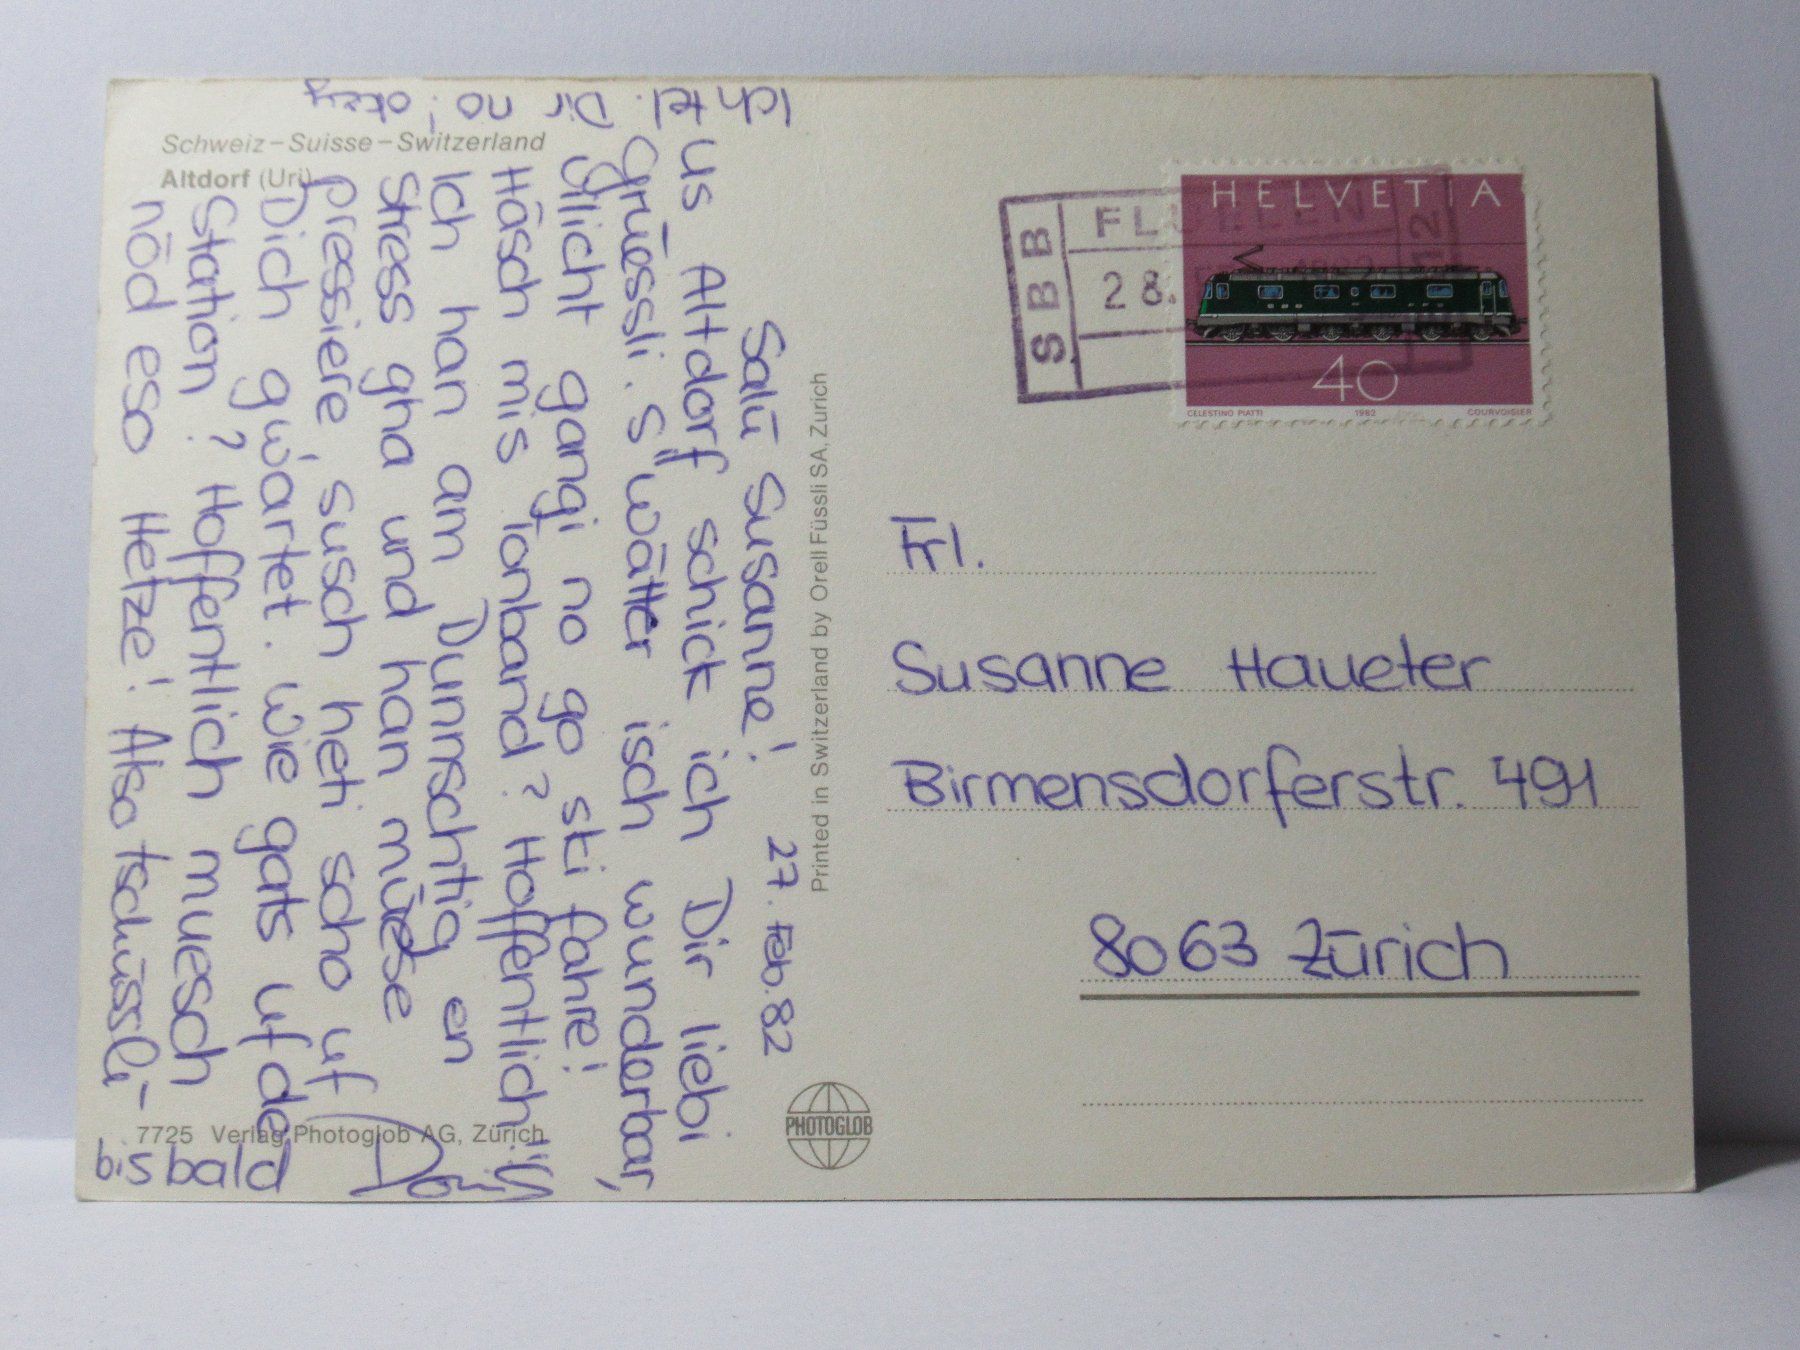 Schweiz – Suisse – Switzerland
Altdorf (Uri)
27. Feb. 82
Salü Susanne!
Us Altdorf schick ich Dir liebi
Grüessli. S'wätter isch wunderbar,
vilicht gangi no go ski fahre!
Häsch mis Tonband? Hoffentlich!
Ich han am Dunnschtig en
Stress gha und han müese
pressiere, susch heti scho uf
Dich gwartet. Wie gats uf de
Station? Hoffentlich muesch
nöd eso Hetze! Also tschüssli-
bis bald
Ich tel. Dir no! okey
7725 Verlag Photoglob AG, Zürich
Printed in Switzerland by Orell Füssli SA, Zürich
PHOTOGLOB
SBB
FLÜELEN
28.
HELVETIA
40
CELESTINO PIATTI 1982 COURVOISIER
Frl.
Susanne Haueter
Birmensdorferstr. 491
8063 Zürich